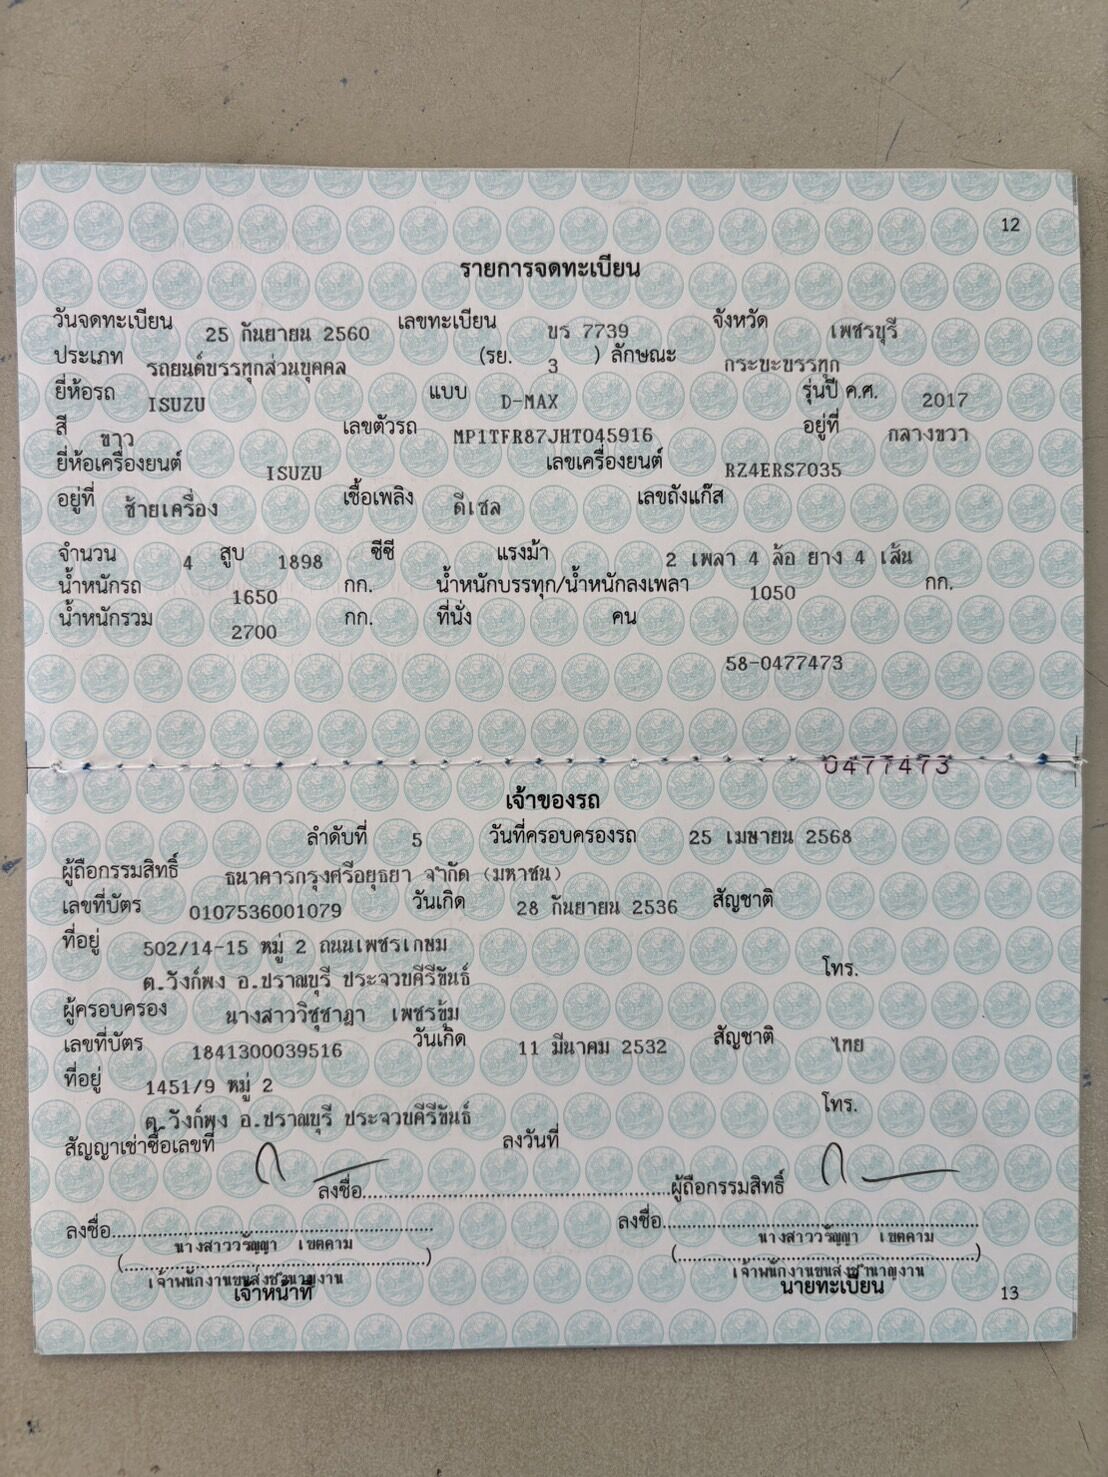 12
รายการจดทะเบียน
วันจดทะเบียน 25 กันยายน 2560 เลขทะเบียน บร 7739 จังหวัด เพชรบุรี
ประเภท รถยนต์บรรทุกส่วนบุคคล (รย. 3 ) ลักษณะ กระบะบรรทุก
ยี่ห้อรถ ISUZU แบบ D-MAX รุ่นปี ค.ศ. 2017
สี ขาว เลขตัวรถ MP1TFR87JHT045916 อยู่ที่ กลางขวา
ยี่ห้อเครื่องยนต์ ISUZU เลขเครื่องยนต์ RZ4ERS7035
อยู่ที่ ซ้ายเครื่อง เชื้อเพลิง ดีเซล เลขถังแก๊ส
จำนวน 4 สูบ 1898 ซีซี แรงม้า 2 เพลา 4 ล้อ ยาง 4 เส้น
น้ำหนักรถ 1650 กก. น้ำหนักบรรทุก/น้ำหนักลงเพลา 1050 กก.
น้ำหนักรวม 2700 กก. ที่นั่ง คน
58-0477473
0477473
เจ้าของรถ
ลำดับที่ 5 วันที่ครอบครองรถ 25 เมษายน 2568
ผู้ถือกรรมสิทธิ์ ธนาคารกรุงศรีอยุธยา จำกัด (มหาชน)
เลขที่บัตร 0107536001079 วันเกิด 28 กันยายน 2536 สัญชาติ
ที่อยู่ 502/14-15 หมู่ 2 ถนนเพชรเกษม
ต.วังก์พง อ.ปราณบุรี ประจวบคีรีขันธ์ โทร.
ผู้ครอบครอง นางสาววิชุชาฎา เพชรขุ้ม
เลขที่บัตร 1841300039516 วันเกิด 11 มีนาคม 2532 สัญชาติ ไทย
ที่อยู่ 1451/9 หมู่ 2
ต.วังก์พง อ.ปราณบุรี ประจวบคีรีขันธ์ โทร.
สัญญาเช่าซื้อเลขที่ ลงวันที่
ลงชื่อ....................ผู้ถือกรรมสิทธิ์
ลงชื่อ.................... ลงชื่อ....................
(นางสาววรัญญา เขตคาม) (นางสาววรัญญา เขตคาม)
เจ้าพนักงานขนส่งชำนาญงาน เจ้าพนักงานขนส่งชำนาญงาน
เจ้าหน้าที่ นายทะเบียน
13